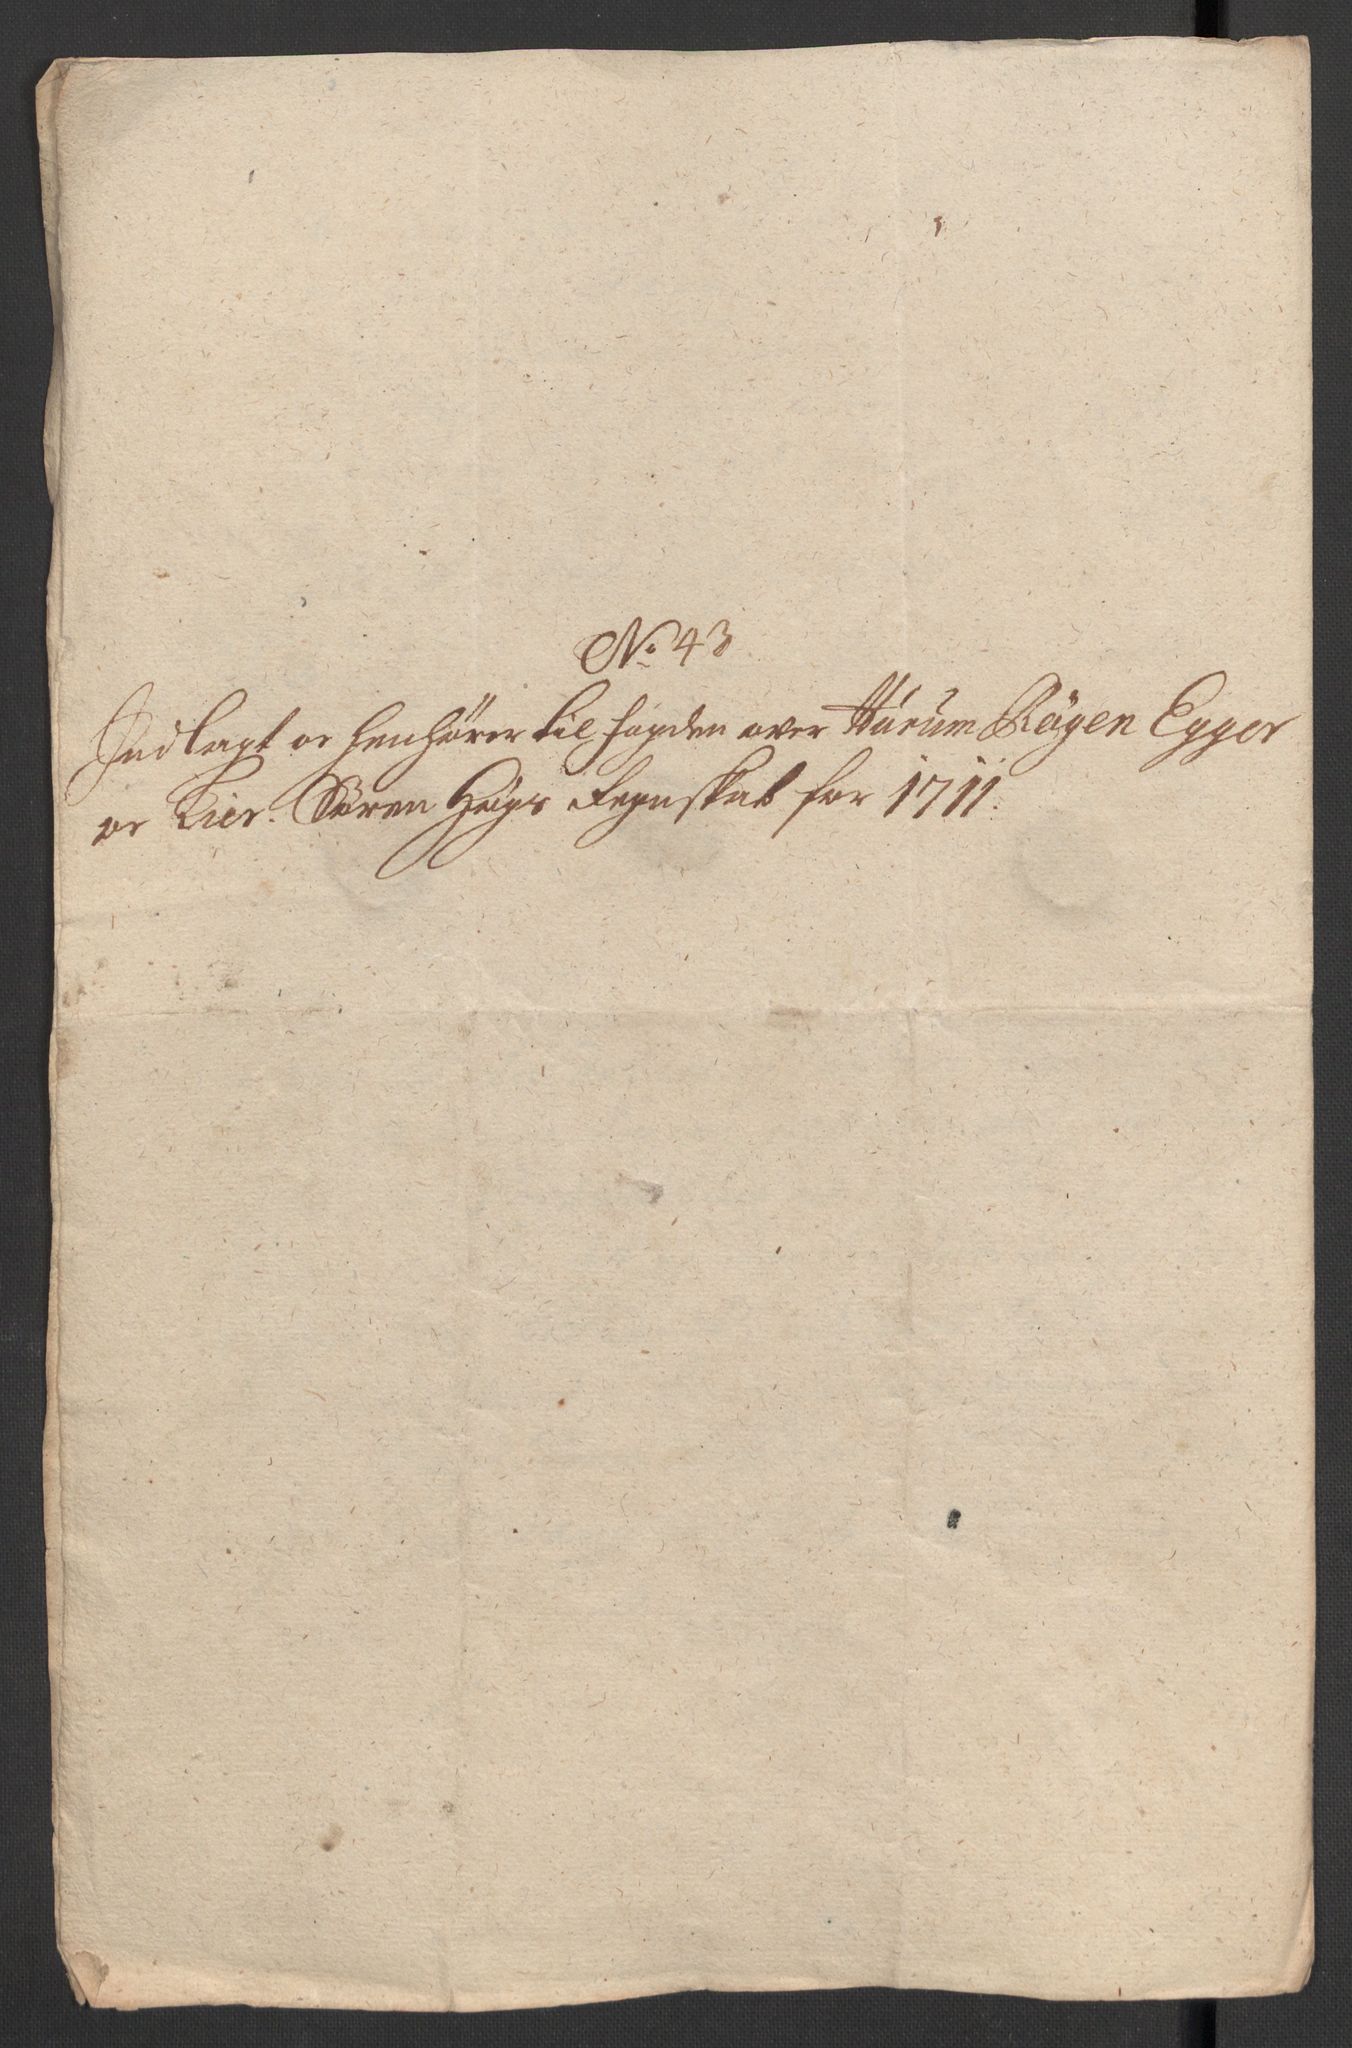 No. 43
Indlagt oc henhører til fogden over Hurum Røgen Egger
oc Kier. Søren Høgs Regnskab for 1711.